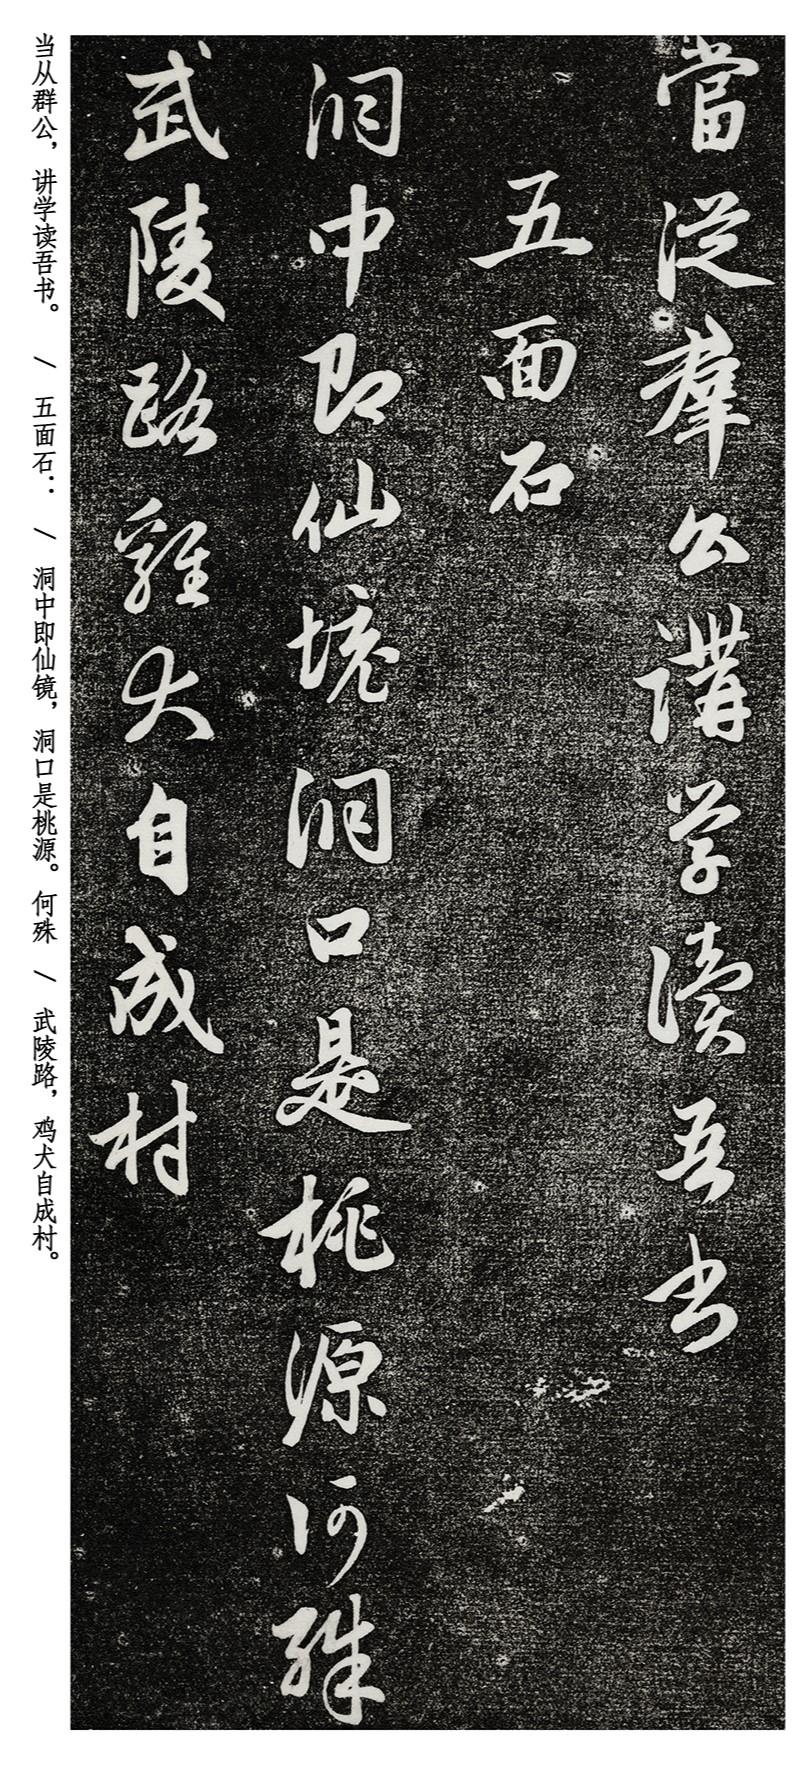 當從羣公講学讀吾书
五面石
洞中即仙境洞口是桃源何殊
武陵路雞犬自成村
当从群公，讲学读吾书。 / 五面石： / 洞中即仙镜，洞口是桃源。何殊 / 武陵路，鸡犬自成村。